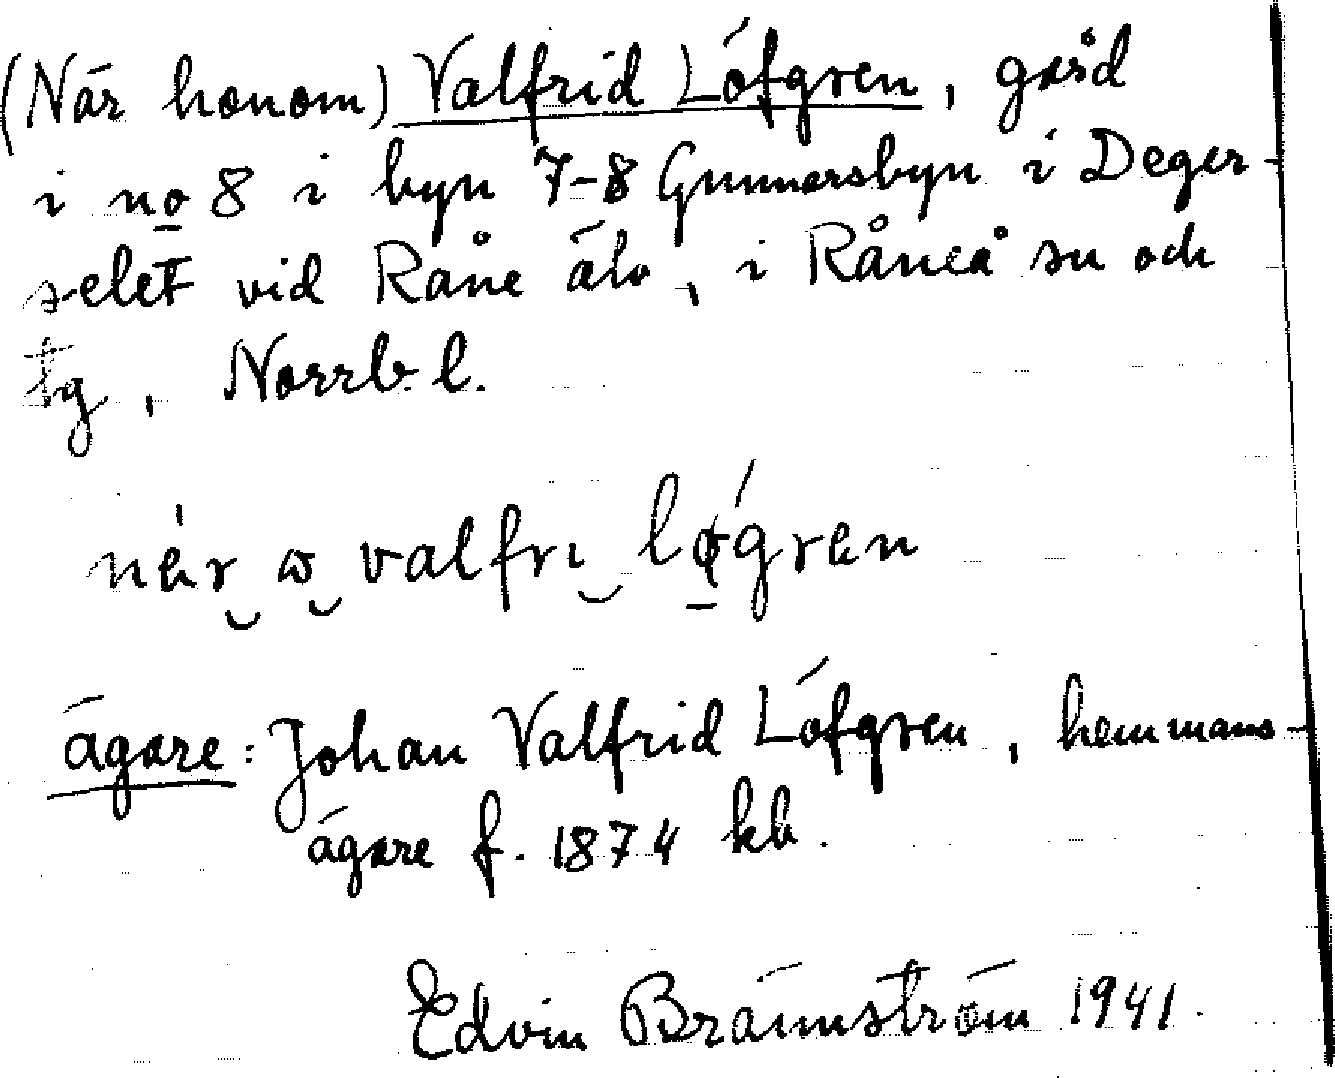 (När honom) Valfrid Löfgren, gård
i no 8 i byn 7-8 Gunnarsbyn i Deger-
selet vid Råne älv, i Råneå sn och
tg, Norrb. l.
når ω valfrı løgren
ägare: Johan Valfrid Löfgren, hemmans-
ägare f. 1874 kb.
Edvin Brännström 1941.